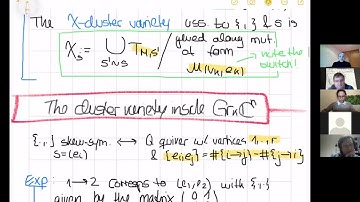 The X-cluster variety ass. to {·,·} & s is
X_s = ⋃ T_{M,s'} / glued along mut.
s'~s of form
μ_{(v_k,e_k)}
note the
switch!
The cluster variety inside Gr_k C^n
{·,·} skew-sym. ↔ Q quiver w/ vertices 1,..,r
s=(e_i) & {e_i,e_j} = #{i→j} - #{j→i}
Exp: 1→2 corresps to (e_1,e_2) with {·,·}
given by the matrix